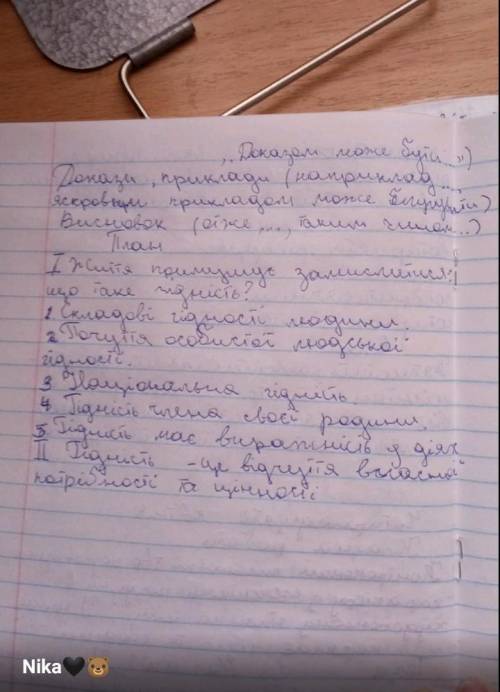 „Доказом може бути...")
Докази, приклади (наприклад...,
яскравим прикладом може
Висновок (отже,..., таким чином...)
План
I Життя примушує замислитися:
що таке гідність?
1. Складові гідності людини.
2. Почуття особистої людської
гідності.
3. Національна гідність.
4. Гідність члена своєї родини.
5. Гідність має виражність у діях
II Гідність - це відчуття власної
потрібності та цінності
Nika🖤🐻